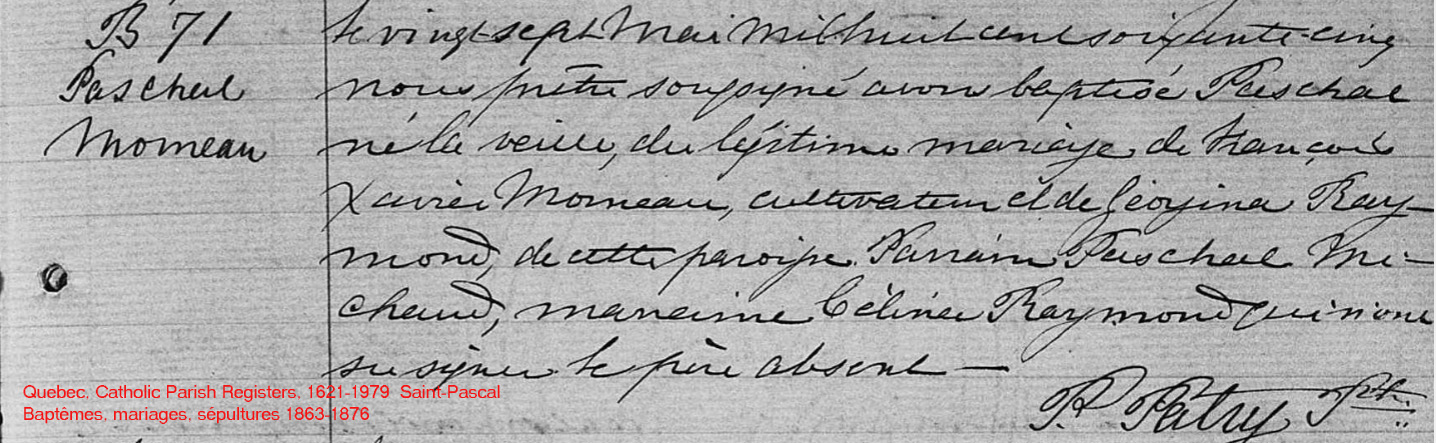 B 71
Paschal
Morneau
le vingt-sept Mai mil huit cent soixante-cinq
nous prêtre soussigné avons baptisé Paschal
né la veille, du légitime mariage de François
Xavier Morneau, cultivateur et de Géorgina Ray-
mond, de cette paroisse. Parrain Paschal Mi-
chaud, marraine Célina Raymond qui n'ont
su signer le père absent —
P. Patry Ptre.
Quebec, Catholic Parish Registers, 1621-1979 Saint-Pascal
Baptêmes, mariages, sépultures 1863-1876